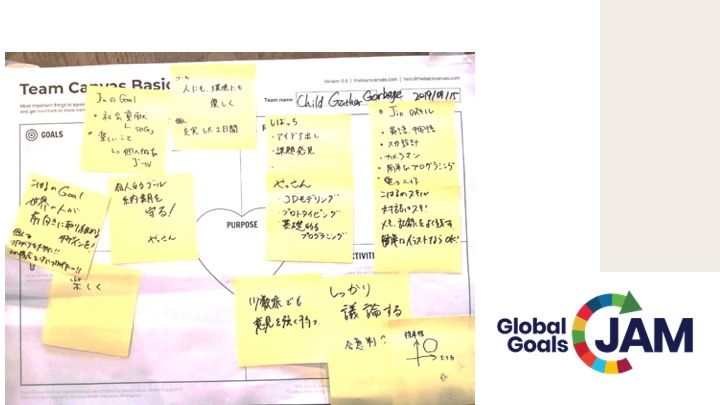 Team Canvas Basic
Version 0.8 | theteamcanvas.com | hello@theteamcanvas.com
Most important things to agree
Team name
Child Gather Garbage 2019/09/15
GOALS
PURPOSE
Jinの Goal
・社会貢献
↳ SDGs
・楽しいこと
↳ 個人的な
ゴール
人にも、環境にも
優しく
充実した2日間
しばっち
・アイデア出し
・課題発見
・Jin のスキル
・英語、
・メカ設計
・カメラマン
・簡単なプログラミング
・電子工作
こはるのスキル
対話はスキ!
メモ、記録をよく残す
簡単なイラストならOK!
こはるの Goal
世界の人が
前向きに取り組める
デザインを!
個人的ゴール
納期を
守る!
やっさん
やっさん
・3Dモデリング
・プロトタイピング
・基礎的な
プログラミング
楽しく
少数派でも
意見を強く持つ
しっかり
議論する
Global
Goals
JAM